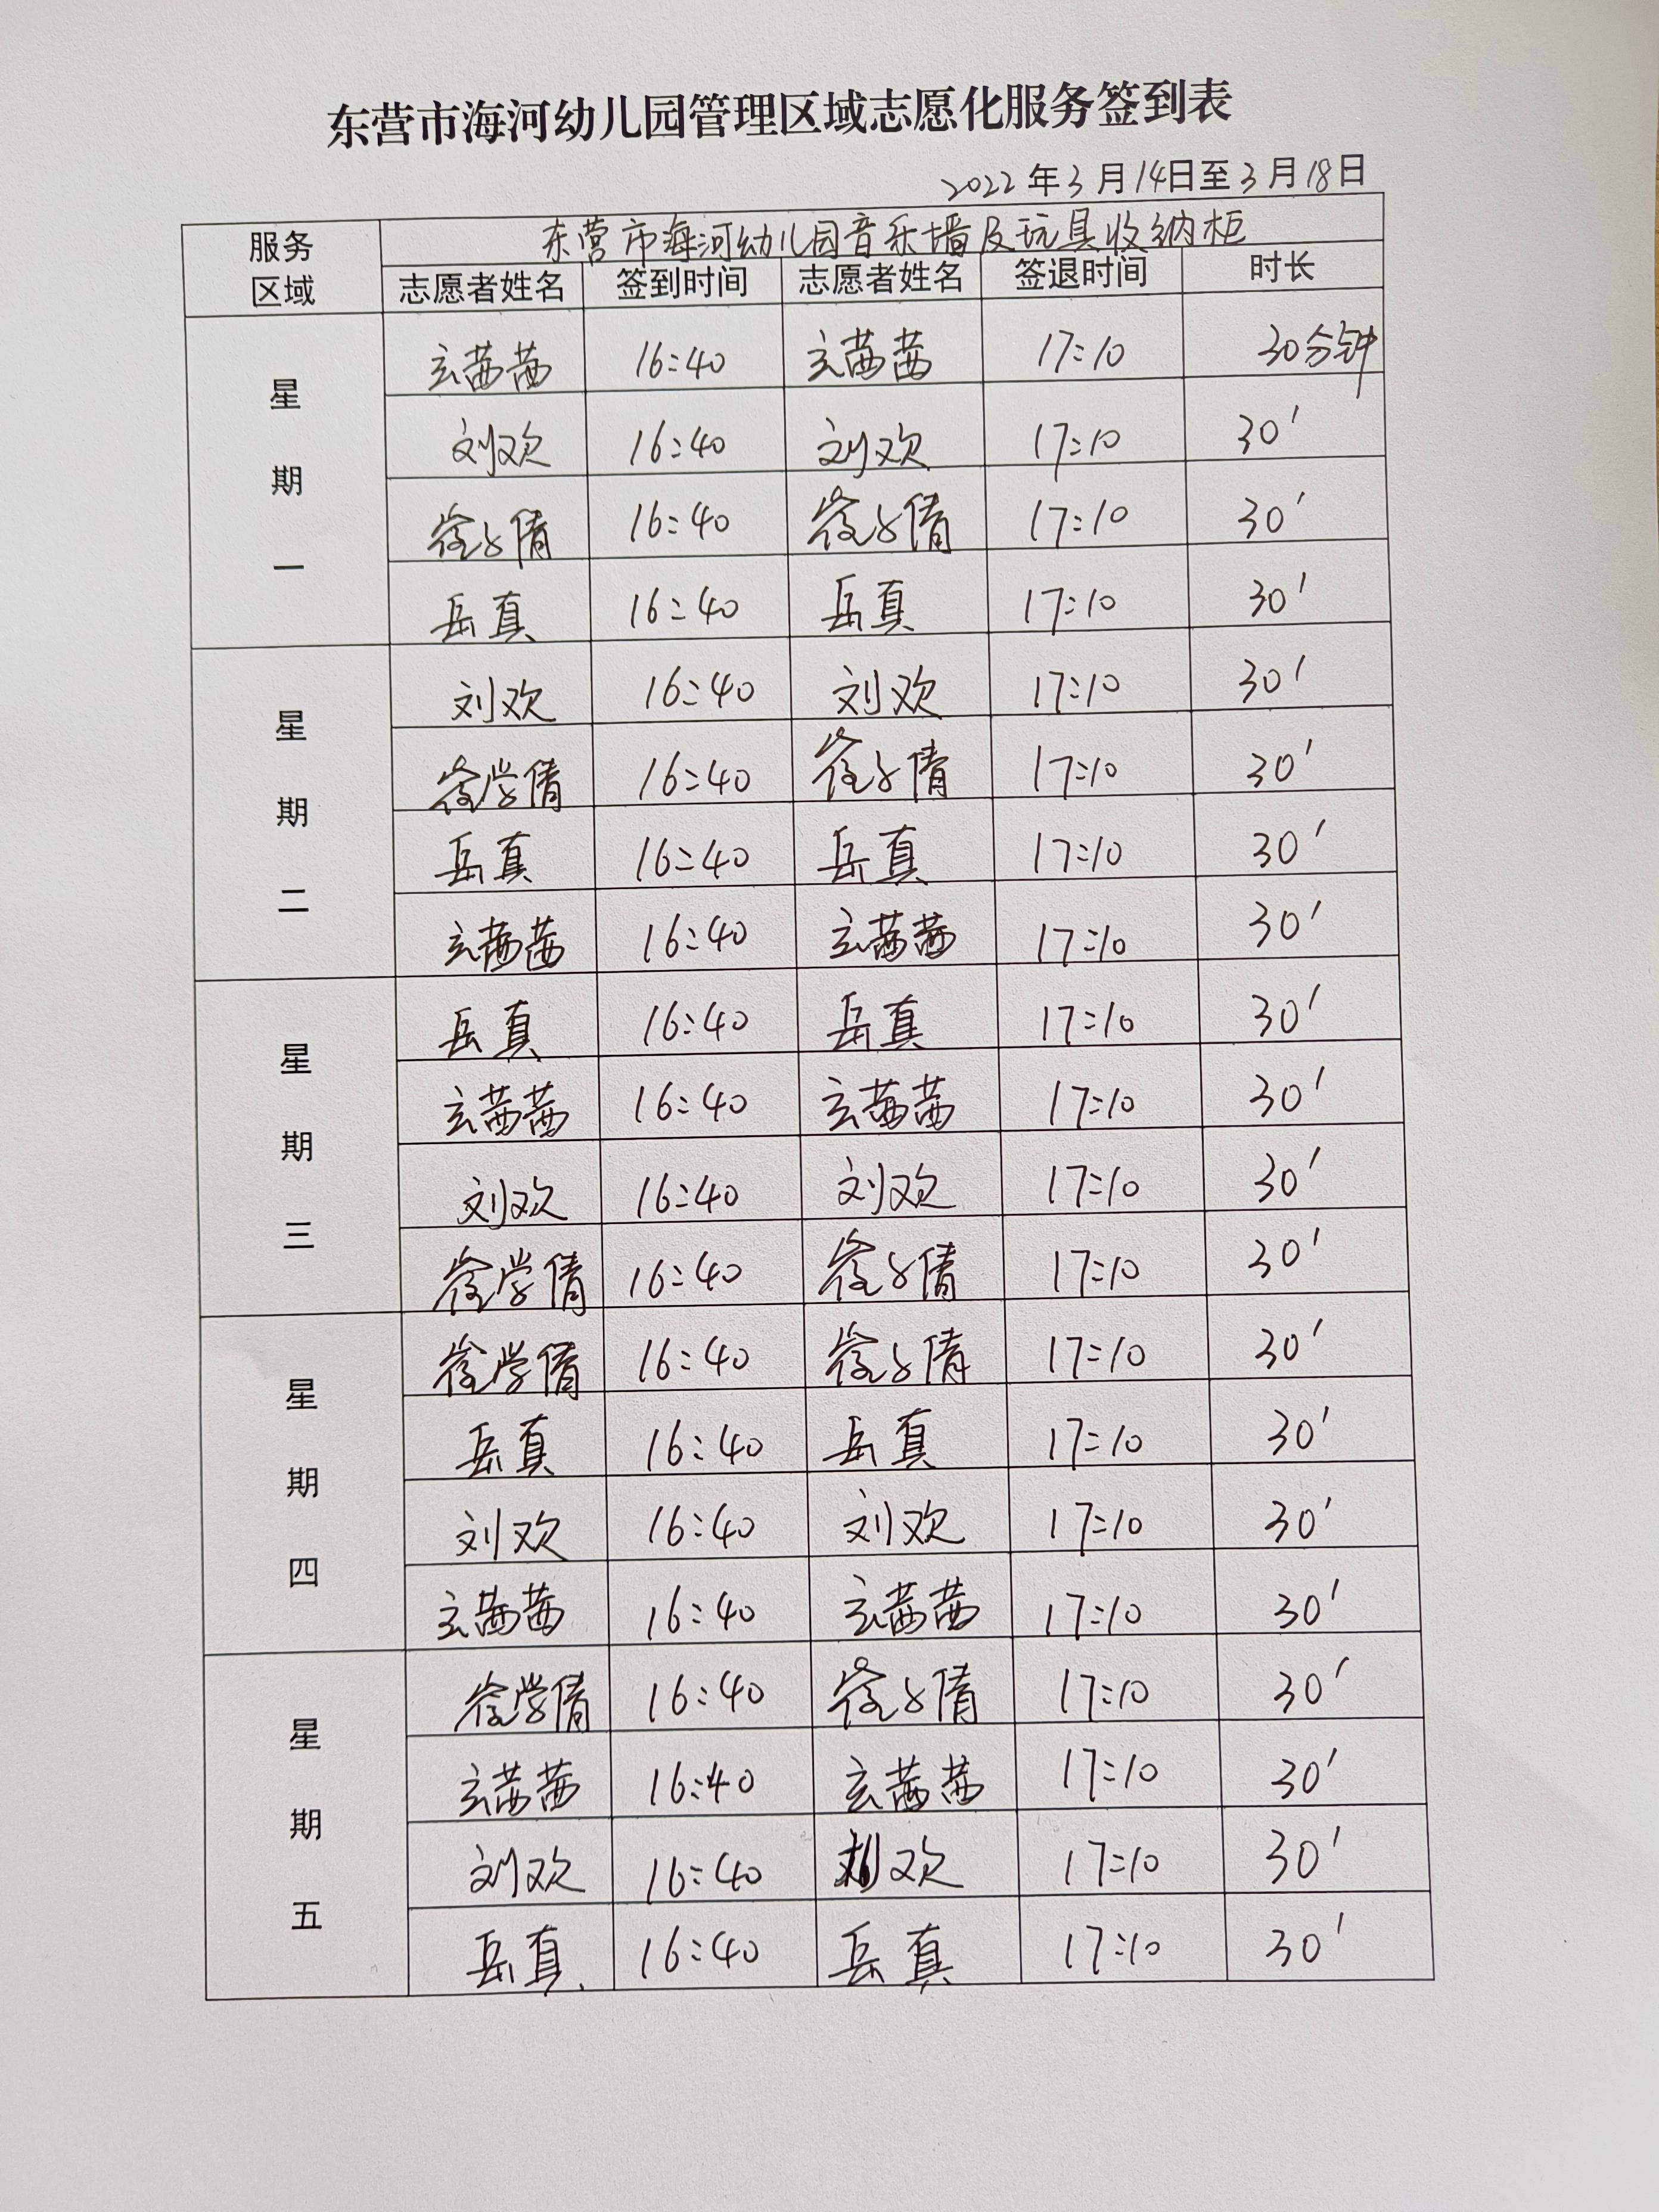 东营市海河幼儿园管理区域志愿化服务签到表
2022年3月14日至3月18日
服务区域 东营市海河幼儿园音乐墙及玩具收纳柜
志愿者姓名 签到时间 志愿者姓名 签退时间 时长
星期一
玄茜茜 16:40 玄茜茜 17:10 30分钟
刘欢 16:40 刘欢 17:10 30′
崔学倩 16:40 崔学倩 17:10 30′
岳真 16:40 岳真 17:10 30′
星期二
刘欢 16:40 刘欢 17:10 30′
崔学倩 16:40 崔学倩 17:10 30′
岳真 16:40 岳真 17:10 30′
玄茜茜 16:40 玄茜茜 17:10 30′
星期三
岳真 16:40 岳真 17:10 30′
玄茜茜 16:40 玄茜茜 17:10 30′
刘欢 16:40 刘欢 17:10 30′
崔学倩 16:40 崔学倩 17:10 30′
星期四
崔学倩 16:40 崔学倩 17:10 30′
岳真 16:40 岳真 17:10 30′
刘欢 16:40 刘欢 17:10 30′
玄茜茜 16:40 玄茜茜 17:10 30′
星期五
崔学倩 16:40 崔学倩 17:10 30′
玄茜茜 16:40 玄茜茜 17:10 30′
刘欢 16:40 刘欢 17:10 30′
岳真 16:40 岳真 17:10 30′